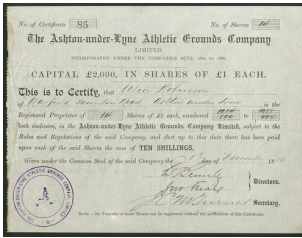 No. of Certificate 85 No. of Shares 14
The Ashton-under-Lyne Athletic Grounds Company
LIMITED.
INCORPORATED UNDER THE COMPANIES ACTS, 1862 to 1886.
CAPITAL £2,000, IN SHARES OF £1 EACH.
This is to Certify, that Alice Robinson
of Road Ashton under Lyne is the
Registered Proprietor of 14 Shares of £1 each, numbered to
both inclusive, in the Ashton-under-Lyne Athletic Grounds Company Limited, subject to the
Rules and Regulations of the said Company, and that up to this date there has been paid
upon each of the said Shares the sum of TEN SHILLINGS.
Given under the Common Seal of the said Company the day of December
Directors.
Secretary.
NOTE.—No Transfer of these Shares can be registered without the production of this Certificate.
THE ASHTON-UNDER-LYNE ATHLETIC GROUNDS COMPANY LIMITED